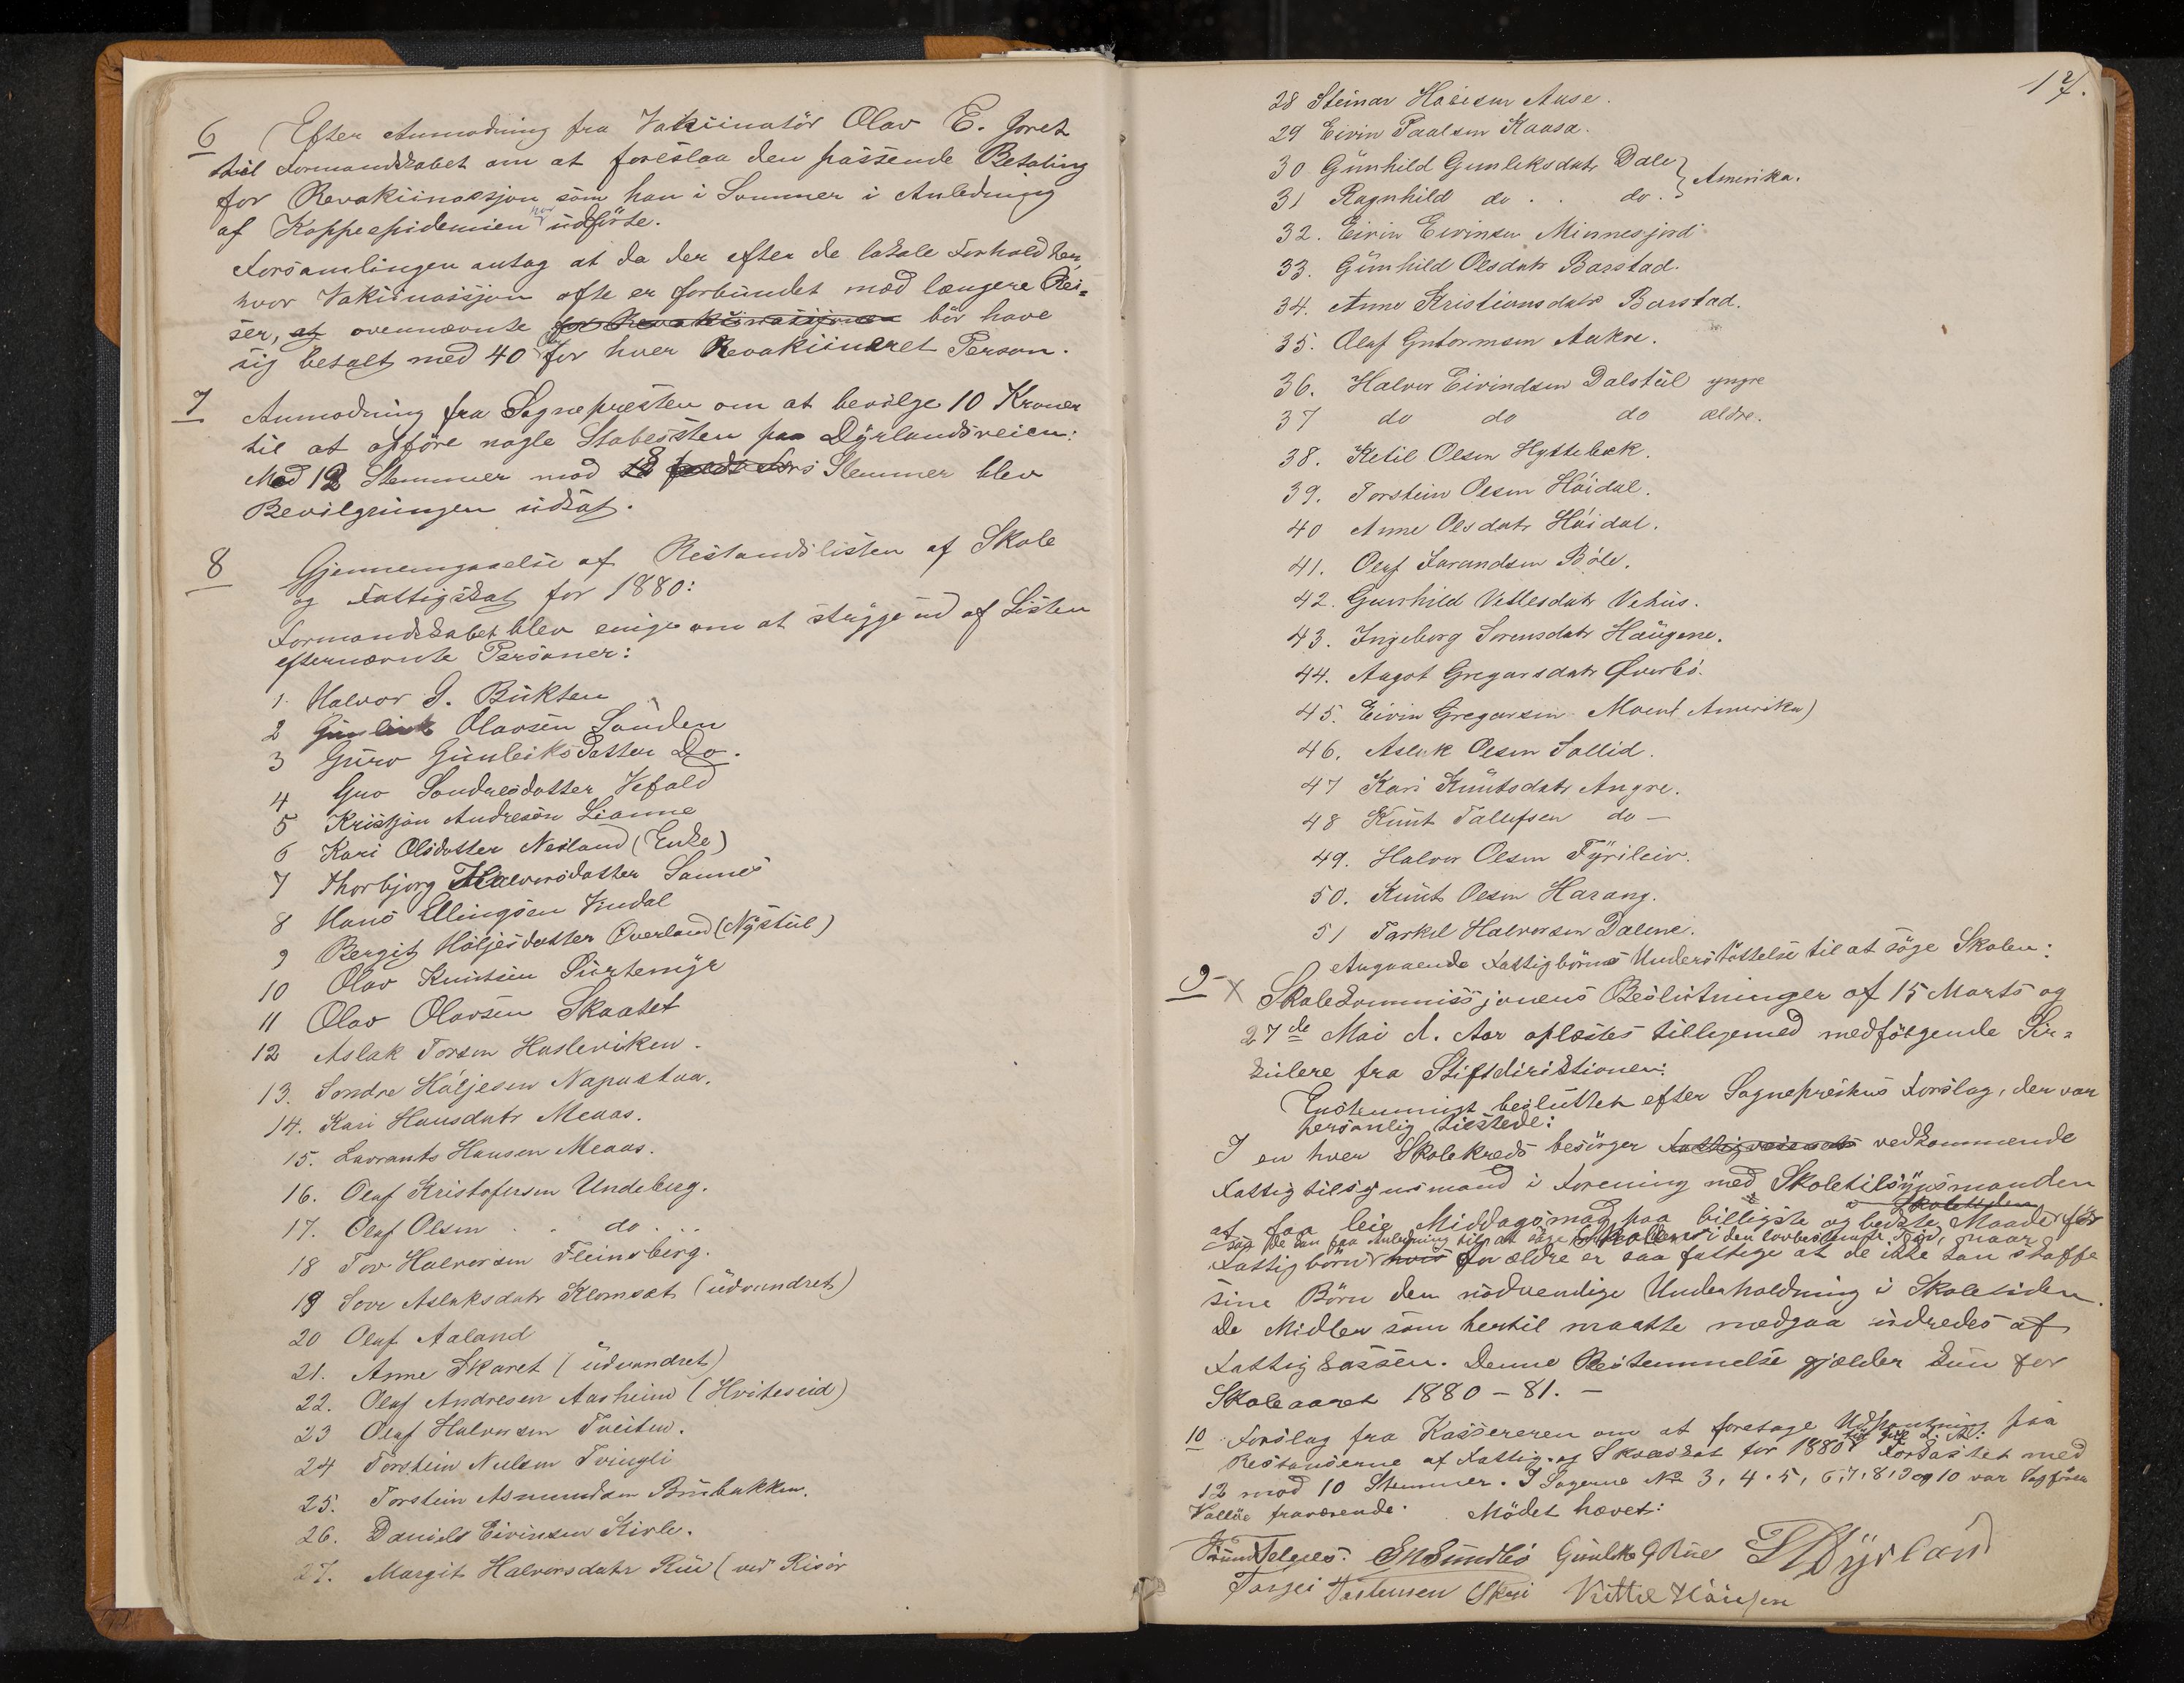 6 Efter Anmodning fra Vakiinatör Olav E.
til Formandskabet om at foreslaa den passende Betaling
for Revakiinassjon som han i Sommer i Anledning
af Koppeepidemien her udförte.
Forsamlingen antog at da der efter de lokale Forhold her,
hvor Vakiinassjon ofte er forbundet med længere Rei=
ser, at ovennævnte for Revakiinassjonen bör have
sig betalt med 40 Öre for hver Revakiineret Person.
7 Anmodning fra Sognepresten om at bevilge 10 Kroner
til at opföre nogle Stabesten paa Dyrlandsveien:
Med 12 Stemmer mod Stemmer blev
Bevilgningen udsat.
8 Gjennemgaaelse af Restandslisten af Skole
og Fattigskat for 1880:
Formandskabet blev enige om at stryge ud af Listen
efternævnte Personer:
1. Halvor G. Bukten
2 Gunleik Olavsen Sanden
3 Guro Gunleiks Datter Do.
4 Guo Sondresdatter Vefald
5 Kristjan Andresön Lianne
6 Kari Olsdatter Nesland (Enke)
7 Thorbjorg Halvorsdatter Sannes
8 Hans Ellingsen Indal
9 Bergit Höljesdatter Överland (Nystul)
10 Olav Knutsen Surtemyr
11 Olav Olavsen Skaatet
12 Aslak Torsen Husleviken.
13. Sondre Höljesen Napustaa.
14. Kari Hansdatr Meaas.
15. Lavrants Hansen Meaas.
16. Oluf Kristofersen Undeberg.
17. Oluf Olsen . . do . .
18 Tov Halvorsen Fleinsberg.
19 Sove Aslaksdatr Klomset (udvandret)
20 Oluf Aaland
21. Anne Skaret (udvandret)
22. Oluf Andresen Aasheim (Hviteseid)
23 Oluf Halvorsen Tveiten.
24 Torstein Nilsen Tvingli
25. Torstein Asmundsen Brubakken.
26. Daniels Eivinsen Kivle.
27. Margit Halvorsdatr Rui (ved Risör
17.
28 Steinar Hansen Aase.
29 Eivin Paalsen Kaasa.
30 Gunhild Gunleksdatr Dale } Amerika.
31 Ragnhild do . . do .
32. Eivin Eivinsen Minnesjord
33. Gunhild Olsdatr Barstad.
34. Anne Kristiansdatr Barstad.
35. Oluf Gutormsen Aakre.
36. Halvor Eivindsen Dalstul yngre
37 do do do ældre.
38. Ketil Olsen Hyttebæk.
39. Torstein Olsen Höidal.
40 Anne Olsdatr Höidal.
41. Oluf Farandsen Böle.
42. Gunhild Vetlesdatr Vehus.
43. Ingeborg Sorensdatr Haugene.
44. Aagot Gregarsdatr Överbö.
45. Eivin Gregarsen Moen (Amerika)
46. Aslak Olsen Sollid.
47 Kari Knutsdatr Angre.
48 Knut Tallefsen do —
49. Halvor Olsen Fyrileiv.
50. Knut Olsen Harang.
51 Tarkel Halvorsen Dalene.
Angaaende Fattigbörns Understöttelse til at söge Skolen:
9 x Skolekommissjonens Beslutninger af 15 Marts og
27de Mai d. Aar oplæstes tilligemed medfölgende Sir=
kulere fra Stiftdirektionen:
Enstemmigt besluttet efter Sognepresten's Forslag, der var
personlig tilstede:
I en hver Skolekreds besörger Fattigvesenets vedkommende
Fattigtilsynsmand i Forening med Skoletilsynsmanden
Skoletiden
at faa leie Middagsmad paa billigste og bedste Maade for
saa de kan faa Anledning til at söge Skolen i den lovbestemte Tid, naar
Fattigbörn hvis Forældre er saa fattige at de ikke kan skaffe
sine Börn den nödvendige Underholdning i Skoletiden.
De Midler som hertil maatte medgaa udredes af
Fattigkassen. Denne Bestemmelse gjælder kun for
Skoleaaret 1880 – 81. –
10 Forslag fra Kassereren om at foretage Udpantning paa
Restanserne af Fattig- og Skoleskat for 1880 Forkastet med
12 mod 10 Stemmer. I Sagerne No 3, 4, 5, 6, 7, 8, 9 og 10 var Sagförer
Vallöe fraværende. Mödet hævet:
Knut Telnes. Gunleik G Rue Dyrland
Targei Kittel Hansen